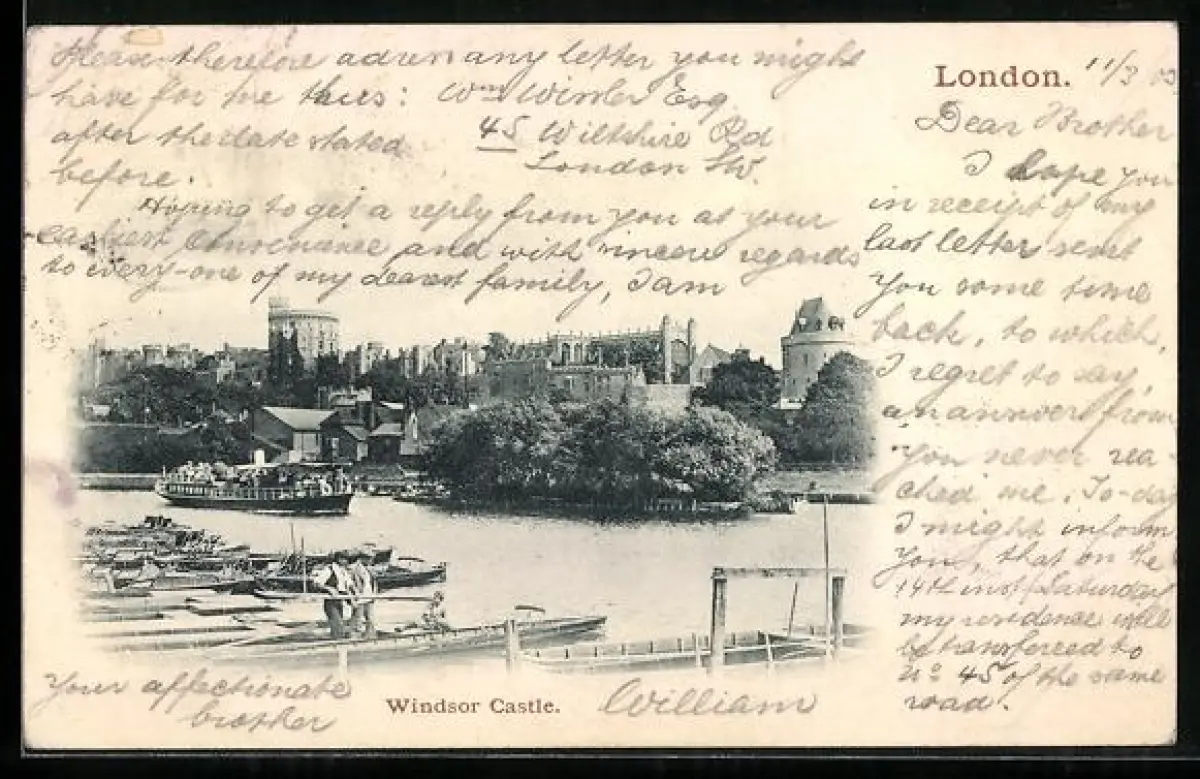 London. 11/3 03
Dear Brother
I hope you
in receipt of my
last letter sent
you some time
back, to which,
I regret to say,
an answer from
you never rea-
ched me. To-day
I might inform
you, that on the
14th inst/Saturday
my residence will
be transferred to
No 45 of the same
road.
Please therefore adress any letter you might
have for me thus: Wm Winler Esq
after the date stated 45 Wiltshire Rd
before. London SW.
Hoping to get a reply from you at your
earliest convenience and with sincere regards
to every-one of my dearest family, I am
Your affectionate
brother
William
Windsor Castle.